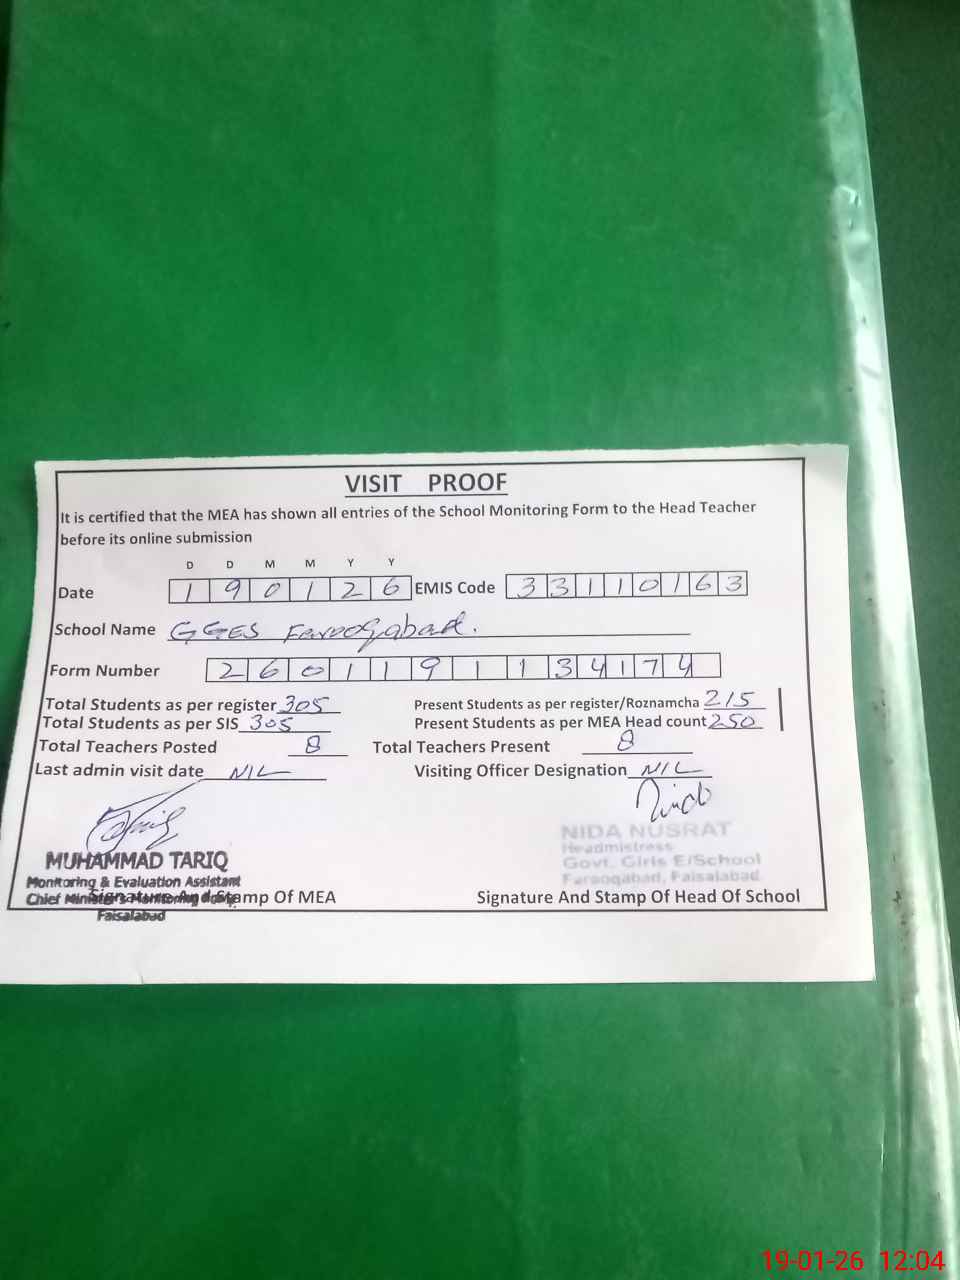 VISIT PROOF
It is certified that the MEA has shown all entries of the School Monitoring Form to the Head Teacher
before its online submission
D D M M Y Y
Date 1 9 0 1 2 6 EMIS Code 3 3 1 1 0 1 6 3
School Name GGES Farooqabad.
Form Number 2 6 0 1 1 9 1 1 3 4 1 7 4
Total Students as per register 305 Present Students as per register/Roznamcha 215
Total Students as per SIS 305 Present Students as per MEA Head count 250
Total Teachers Posted 8 Total Teachers Present 8
Last admin visit date NIL Visiting Officer Designation NIL
MUHAMMAD TARIQ
Monitoring & Evaluation Assistant
Chief Minister's Monitoring
Faisalabad
Signature And Stamp Of MEA
NIDA NUSRAT
Headmistress
Govt. Girls E/School
Farooqabad, Faisalabad
Signature And Stamp Of Head Of School
19-01-26 12:04